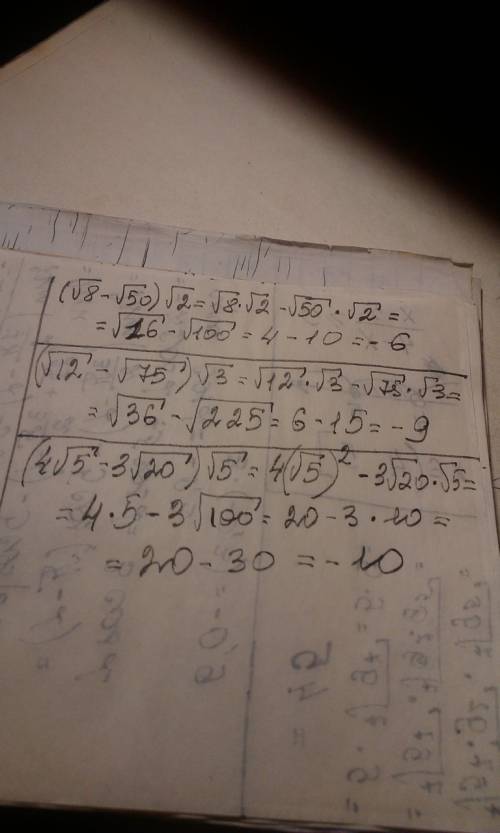 (√8 - √50) √2 = √8 · √2 - √50 · √2 =
= √16 - √100 = 4 - 10 = - 6
(√12 - √75) √3 = √12 · √3 - √75 · √3 =
= √36 - √225 = 6 - 15 = - 9
(4√5 - 3√20) √5 = 4(√5)² - 3√20 · √5 =
= 4 · 5 - 3√100 = 20 - 3 · 10 =
= 20 - 30 = - 10